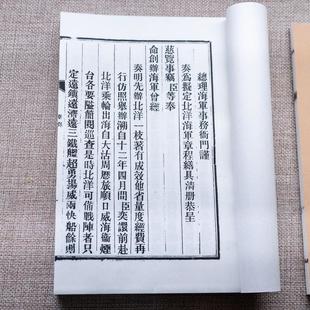 總理海軍事務衙門謹
奏為擬定北洋海軍章程繕具清册恭呈
慈覽事竊臣等奉
命創辦海軍曾經
奏明先辦北洋一枝著有成效他省量度經費再
行仿照舉辦溯自十二年四月間臣奕譞前赴
北洋乘輪出海自大沽周歷旅順口威海衞煙
台各要隘簡閱巡查是時北洋可備戰陣者只
定遠鎮遠濟遠三鐵艦超勇揚威兩快船餘剩